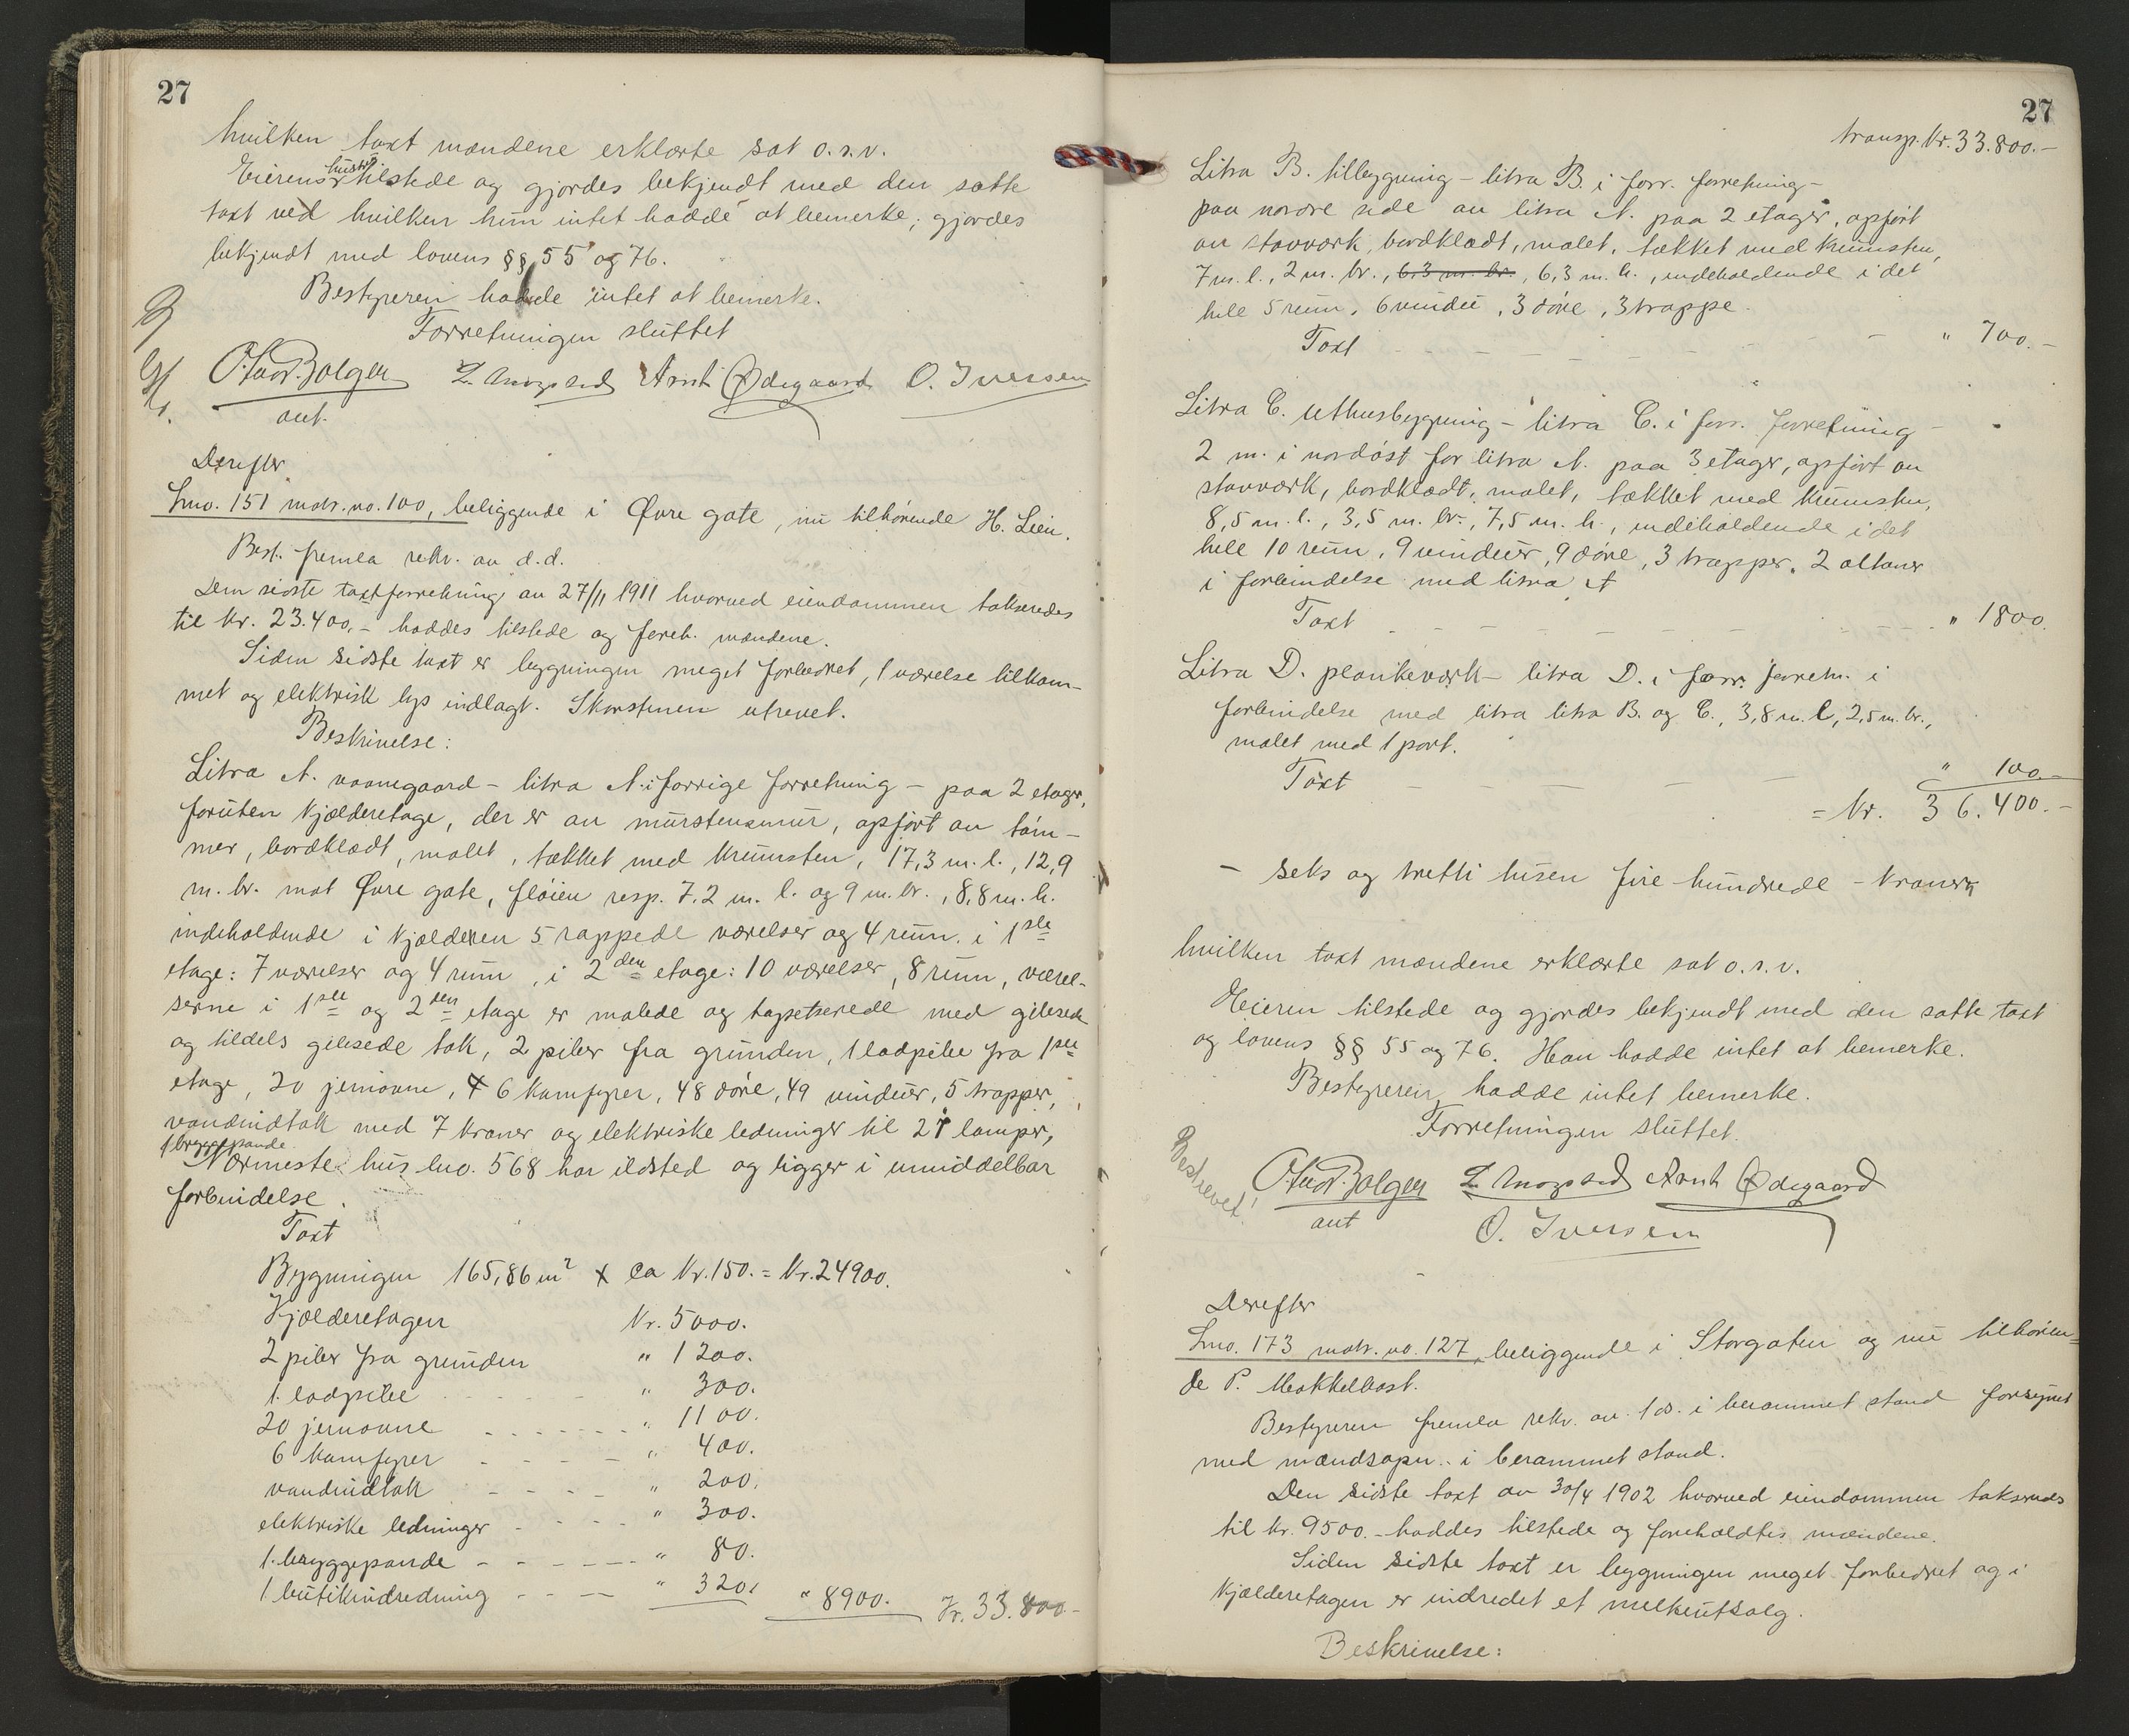 27
hvilken taxt mændene erklærte sat o.s.v.
Eierens hustru tilstede og gjordes bekjendt med den satte
taxt ved hvilken hun intet hadde at bemerke; gjordes
bekjendt med lovens §§ 55 og 76.
Bestyreren hadde intet at bemerke.
Forretningen sluttet
Arnt Ødegaard O. Iversen
aut.
Derefter
Lno. 151 matr. no. 100, beliggende i Øvre gate, nu tilhørende H. Lein.
Best. fremla rekv. av d.d.
Den sidste taxtforretning av 27/11 1911 hvorved eiendommen takseredes
til kr. 23.400,- haddes tilstede og foreh. mændene.
Siden sidste taxt er bygningen meget forbedret, 1 værelse tilkom-
met og elektrisk lys indlagt. Skorstenen utrevet.
Beskrivelse:
Litra A. vaanegaard - litra A. i forrige forretning - paa 2 etager,
foruten kjælderetage, der er av murstensmur, opført av tøm-
mer, bordklædt, malet, tækket med krumsten, 17,3 m. l., 12,9
m. br. mot Øvre gate, fløien resp. 7.2 m. l. og 9 m. br., 8,8 m. h.
indeholdende i kjælderen 5 rappede værelser og 4 rum. i 1ste
etage: 7 værelser og 4 rum, i 2den etage: 10 værelser, 8 rum, værel-
serne i 1ste og 2den etage er malede og tapetserede med gibsede
og tildels gibsede tak, 2 piber fra grunden, 1 lodpibe fra 1ste
etage, 20 jernovne, 6 komfyrer, 48 døre, 49 vinduer, 5 trapper,
vandindtak med 7 kraner og elektriske ledninger til 21 lamper,
1 bryggepande
Nærmeste hus lno. 568 har ildsted og ligger i umiddelbar
forbindelse.
Taxt
Bygningen 165,86 m² x ca kr. 150. = kr. 24900.
Kjælderetagen kr. 5000.
2 piber fra grunden " 1200.
1. lodpibe " 300.
20 jernovne " 1100.
6 komfyrer " 400.
vandindtak " 200.
elektriske ledninger " 300.
1. bryggepande " 80.
1 butikindredning " 320. " 8900. Kr. 33.800.-
27
transp. kr. 33.800.-
Litra B. tilbygning - litra B. i forr. forretning -
paa nordre side av litra A. paa 2 etager, opført
av stavverk, bordklædt, malet, tækket med krumsten,
7 m. l., 2 m. br., 6,3 m. br., 6,3 m. h., indeholdende i det
hele 5 rum, 6 vindu, 3 døre, 3 trappe.
Taxt " 700.-
Litra C. uthusbygning - litra C. i forr. forretning -
2 m. i nordøst for litra A. paa 3 etager, opført av
stavværk, bordklædt, malet, tækket med krumsten,
8,5 m. l., 3,5 m. br., 7,5 m. h., indeholdende i det
hele 10 rum, 9 vinduer, 9 døre, 3 trapper, 2 altaner
i forbindelse med litra A
Taxt " 1800.
Litra D. plankeværk - litra D. i forr. forretn. i
forbindelse med litra litra B. og C., 3,8 m. l, 2,5 m. br.,
malet med 1 port.
Taxt " 100.-
= kr. 36.400.-
- seks og tretti tusen fire hundrede - kroner,
hvilken taxt mændene erklærte sat o.s.v.
Eieren tilstede og gjordes bekjendt med den satte taxt
og lovens §§ 55 og 76. Han hadde intet at bemerke.
Bestyreren hadde intet bemerke.
Forretningen sluttet.
Beskrevet!
Arnt Ødegaard
aut O. Iversen
Derefter
Lno. 173 matr. no. 127, beliggende i Storgaten og nu tilhøren=
de P. Mokkelbost.
Bestyreren fremla rekv. av 1 ds. i berammet stand forsynet
med mændsopn. i berammet stand.
Den sidste taxt av 30/4 1902 hvorved eiendommen takseredes
til kr. 9500.- haddes tilstede og foreholdtes mændene.
Siden sidste taxt er bygningen meget forbedret og i
kjælderetagen er indredet et melkeutsalg.
Beskrivelse: